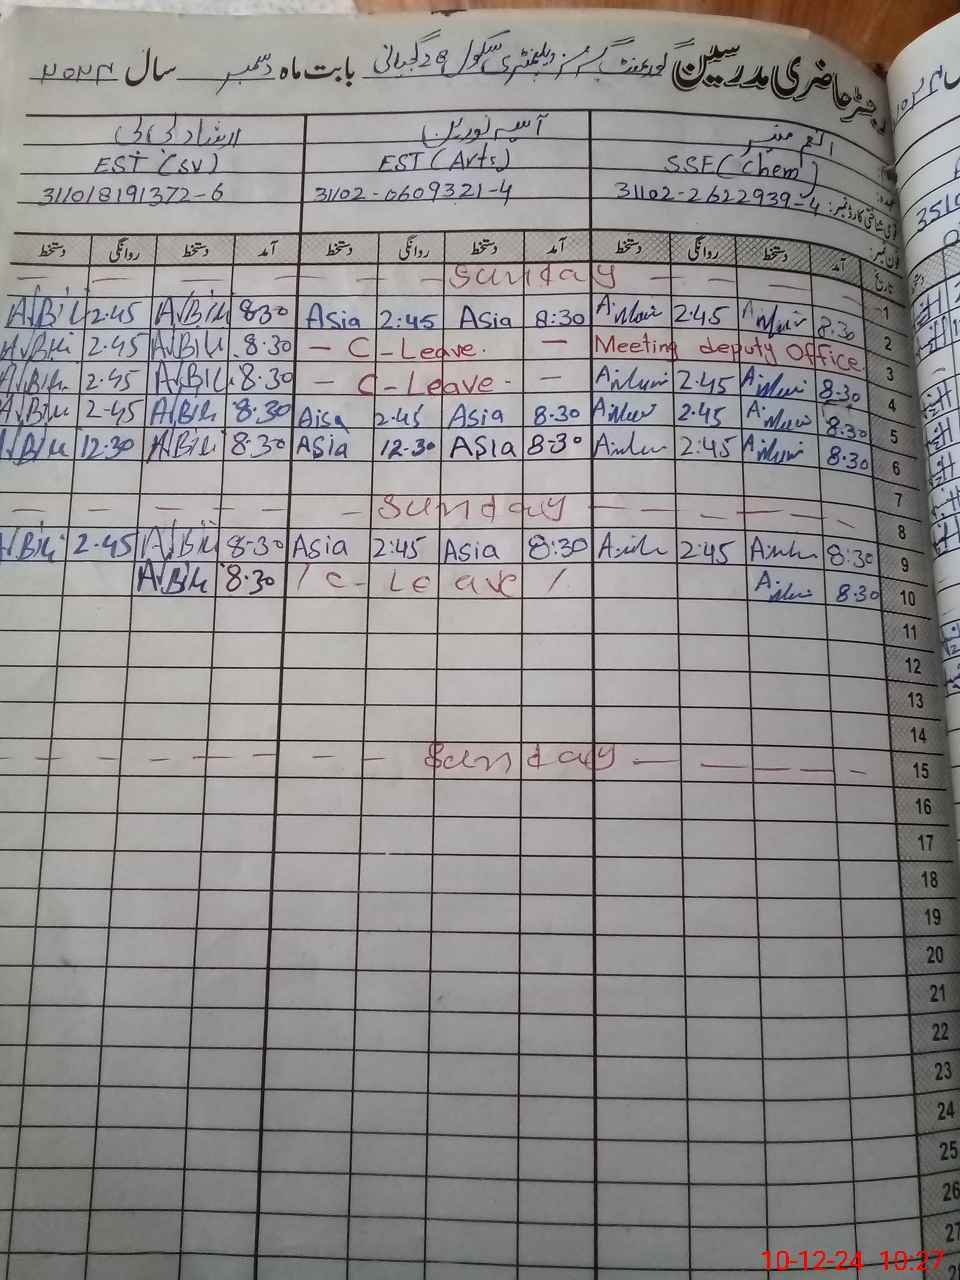 رجسٹر حاضری مدرسین گورنمنٹ گرلز ایلیمنٹری سکول 28 گجیانی بابت ماہ دسمبر سال ۲۰۲۴
انعم منیر آسیہ نورین
SSE (Chem) EST (Arts) EST (SV)
31102-2622939-4 31102-0609321-4 3110181913 72-6
تاریخ آمد دستخط روانگی دستخط آمد دستخط روانگی دستخط آمد دستخط روانگی دستخط
1 — — — Sunday — — — —
2 8.30 2.45 8:30 Asia 2:45 Asia 8.30 A/Bili 2.45 A/Bili
3 Meeting deputy Office — C-Leave. — 8.30 A/Bili 2.45 A/Bili
4 8.30 2.45 — C-Leave - — 8.30 A/Bili 2.45 A/Bili
5 8.30 2.45 8.30 Asia 2.45 Aisa 8.30 A/Bili 2.45 A/Bili
6 8.30 2.45 8-30 ASIA 12-30 ASIA 8.30 A/Bili 12.30 A/Bili
7
8 — — — — Sunday — — — — —
9 8:30 2.45 8:30 Asia 2:45 Asia 8-30 A/Bili 2.45 A/Bili
10 8.30 / C-Leave / 8.30 A/Bili
11
12
13
14
15 — — — — — Sunday — — — — —
16
17
18
19
20
21
22
23
24
25
26
27
10-12-24 10:27